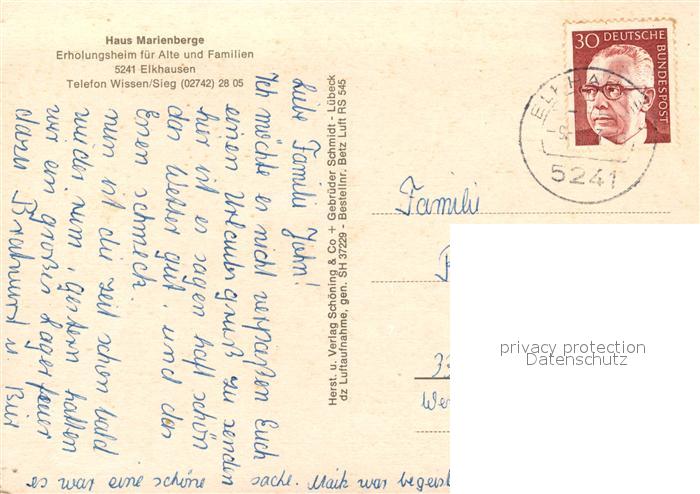 Haus Marienberge
Erholungsheim für Alte und Familien
5241 Elkhausen
Telefon Wissen/Sieg (02742) 28 05
30 DEUTSCHE
BUNDESPOST
ELKHAUSEN
5241
Herst. u. Verlag Schöning & Co + Gebrüder Schmidt - Lübeck
dz Luftaufnahme, gen. SH 37229 - Bestellnr. Betz Luft RS 545
Liebe Familie John!
Ich möchte es nicht verpaßen Euch
einen Urlaubsgruß zu senden
hier ist es sagenhaft schön
das Wetter gut, und das
Essen schmeck.
nun ist die zeit schon bald
wieder rum, gestern hatten
wir ein großes Lagerfeuer
dazu Bratwurst u. Bier
es war eine schöne sache. Maik war begeist
Familie
33
We
privacy protection
Datenschutz